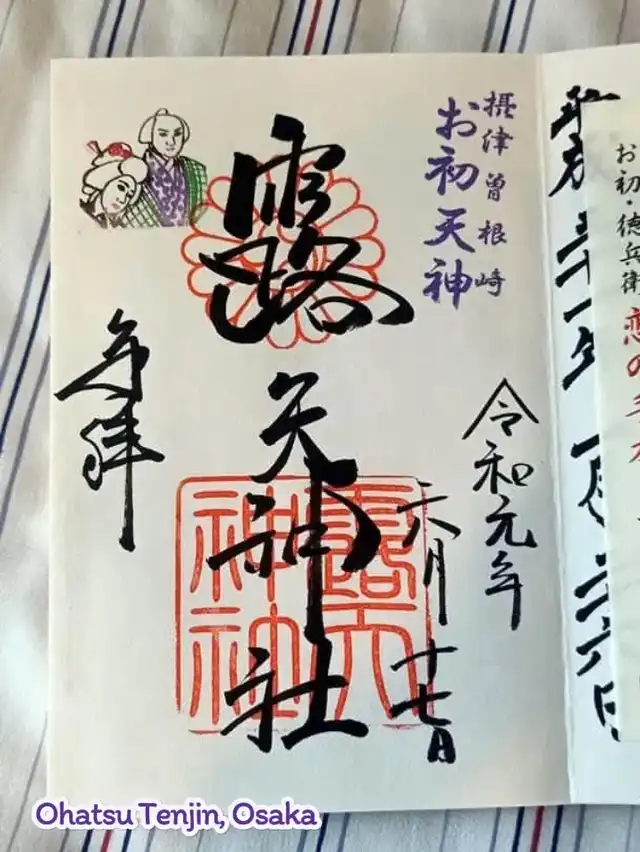 お初・徳兵衛
恋の手本
平成三十一年一月二十六日
摂津曽根崎
お初天神
令和元年
六月十七日
露天神社
露天
神社
奉拝
Ohatsu Tenjin, Osaka